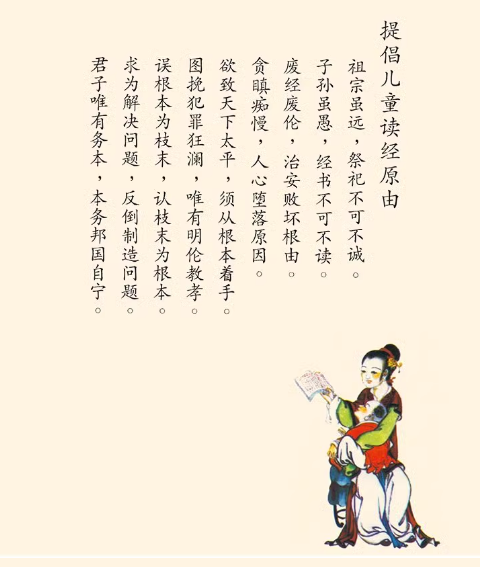 提倡儿童读经原由
祖宗虽远，祭祀不可不诚。
子孙虽愚，经书不可不读。
废经废伦，治安败坏根由。
贪瞋痴慢，人心堕落原因。
欲致天下太平，须从根本着手。
图挽犯罪狂澜，唯有明伦教孝。
误根本为枝末，认枝末为根本。
求为解决问题，反倒制造问题。
君子唯有务本，本务邦国自宁。